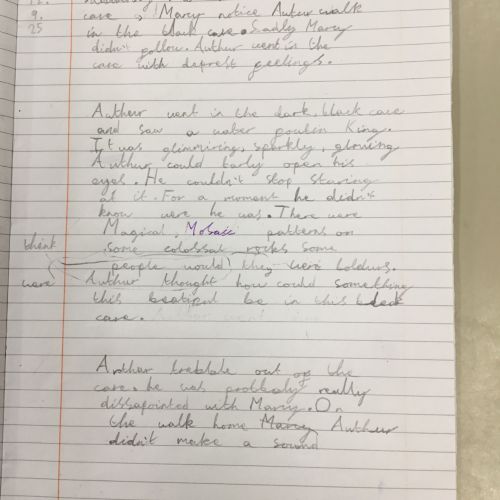 9. cave, Marcy notice Autur walk
25 in the black cave. Sadly Marcy
didn't follow. Authur went in the
cave with deprest feelings.
Authur went in the dark, black cave
and saw a water King.
It was glimmiring, sparkly, glowing
Authur could barly open his
eyes. He couldn't stop staring
at it. For a moment he didn't
know were he was. There were
Magical Mosaic patterns on
think some colossal rocks some
people would they were boldurs.
were Authur thought how could something
this beatiful be in this black
cave.
Arthur out of the
cave. he was really
dissapointed with Marcy. On
the walk home Marcy Authur
didn't make a sound